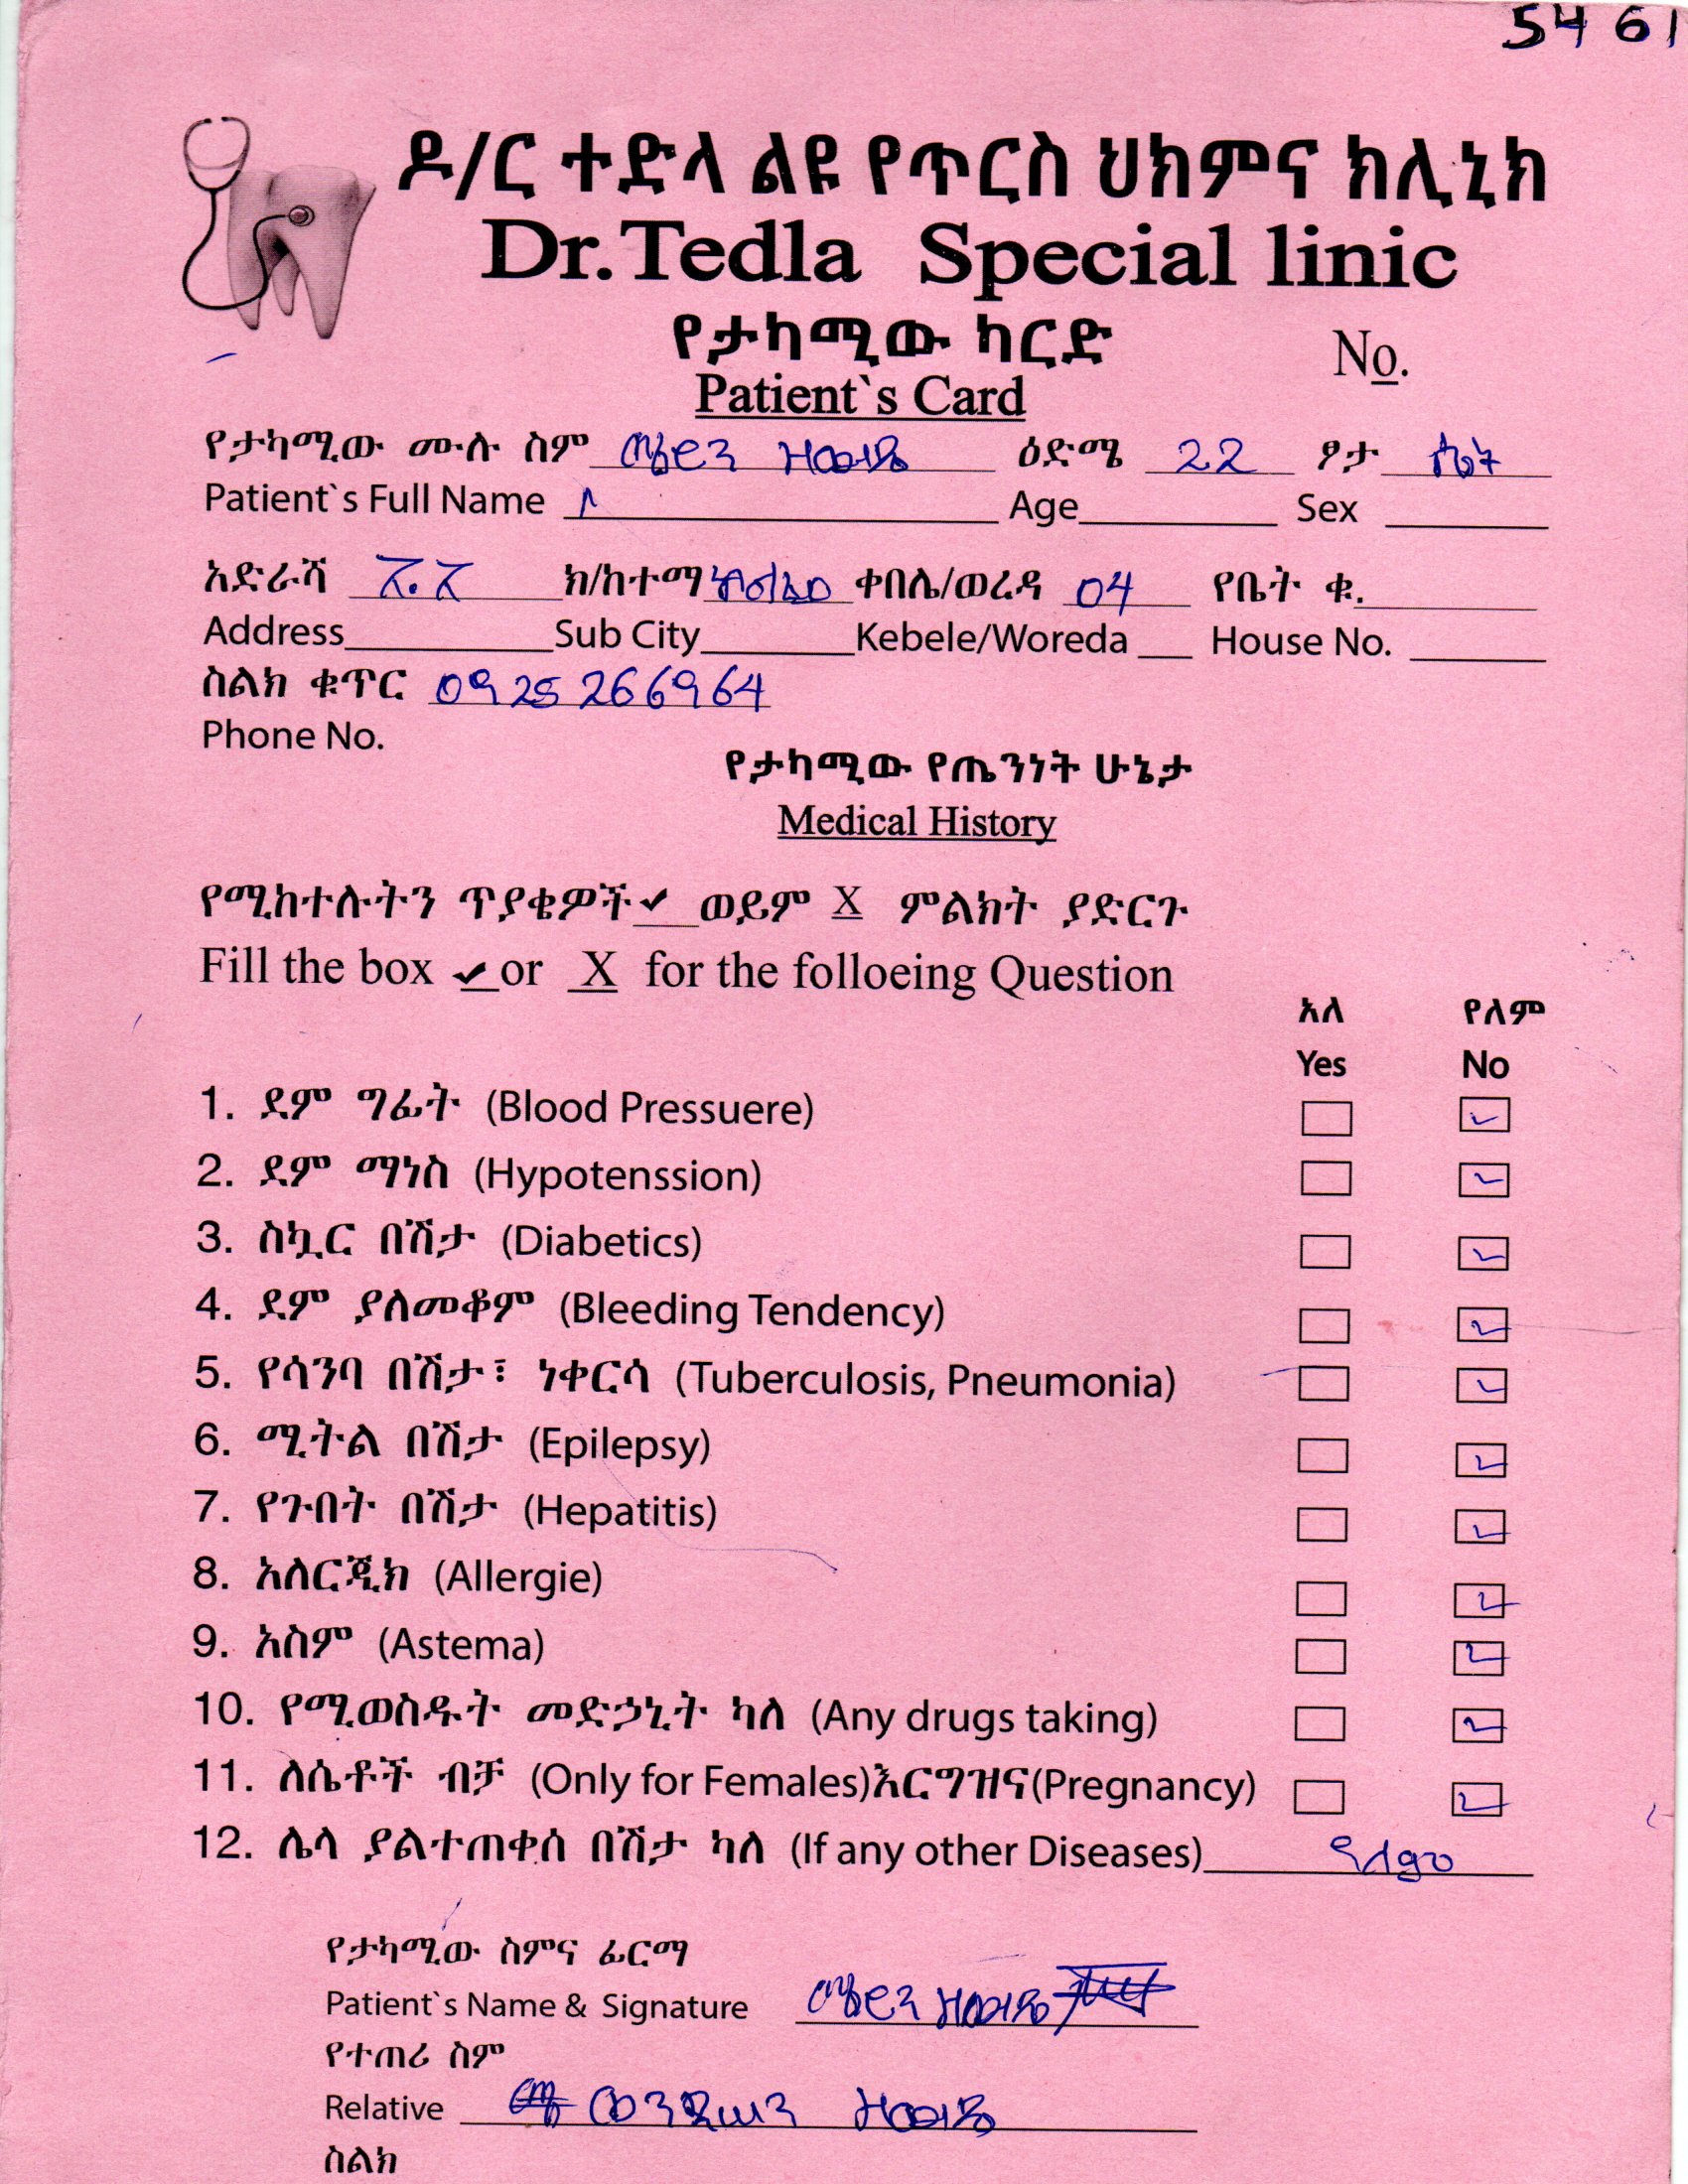 5461
ዶ/ር ተድላ ልዩ የጥርስ ህክምና ክሊኒክ
Dr.Tedla Special linic
የታካሚው ካርድ
No.
Patient`s Card
የታካሚው ሙሉ ስም ዕድሜ 22 ፆታ ሴት
Patient`s Full Name Age Sex
አድራሻ ክ/ከተማ ቀበሌ/ወረዳ 04 የቤት ቁ.
Address Sub City Kebele/Woreda House No.
ስልክ ቁጥር 0925266964
Phone No.
የታካሚው የጤንነት ሁኔታ
Medical History
የሚከተሉትን ጥያቄዎች ✔ ወይም X ምልክት ያድርጉ
Fill the box ✔ or X for the folloeing Question
አለ የለም
Yes No
1. ደም ግፊት (Blood Pressuere) ✓
2. ደም ማነስ (Hypotenssion) ✓
3. ስኳር በሽታ (Diabetics) ✓
4. ደም ያለመቆም (Bleeding Tendency) ✓
5. የሳንባ በሽታ፣ ነቀርሳ (Tuberculosis, Pneumonia) ✓
6. ሚትል በሽታ (Epilepsy) ✓
7. የጉበት በሽታ (Hepatitis) ✓
8. አለርጂክ (Allergie) ✓
9. አስም (Astema) ✓
10. የሚወስዱት መድኃኒት ካለ (Any drugs taking) ✓
11. ለሴቶች ብቻ (Only for Females)እርግዝና(Pregnancy) ✓
12. ሌላ ያልተጠቀሰ በሽታ ካለ (If any other Diseases) የለም
የታካሚው ስምና ፊርማ
Patient`s Name & Signature
የተጠሪ ስም
Relative
ስልክ